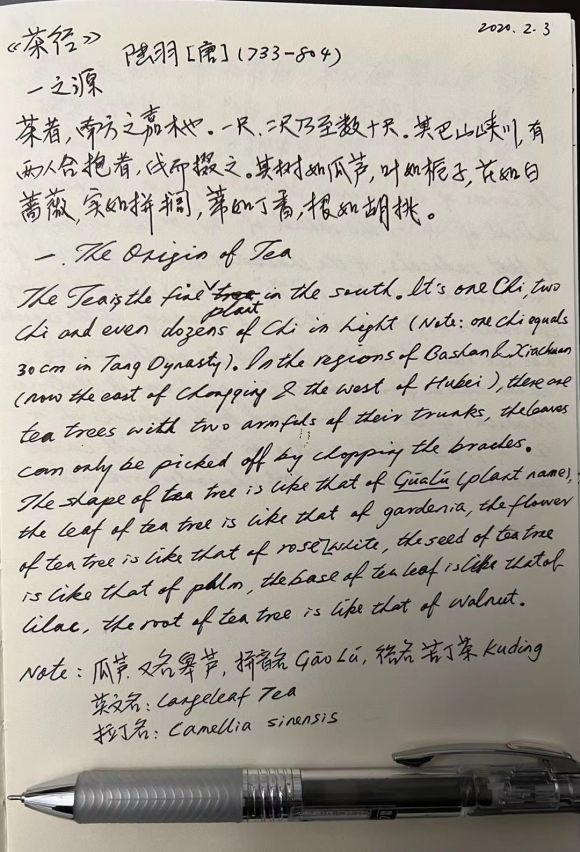 2020.2.3
《茶经》 陆羽[唐](733-804)
一之源
茶者,南方之嘉木也。一尺、二尺乃至数十尺。其巴山峡川,有
两人合抱者,伐而掇之。其树如瓜芦,叶如栀子,花如白
蔷薇,实如拼榈,蒂如丁香,根如胡桃。
一. The Origin of Tea
The Tea is the fine plant in the south. It's one Chi, two
Chi and even dozens of Chi in hight (Note: one chi equals
30 cm in Tang Dynasty). In the regions of Bashan & Xiachuan
(now the east of Chongqing & the west of Hubei), there are
tea trees with two armfuls of their trunks, the leaves
can only be picked off by chopping the braches.
The shape of tea tree is like that of GūaLú (plant name),
the leaf of tea tree is like that of gardenia, the flower
of tea tree is like that of rose white, the seed of tea tree
is like that of palm, the base of tea leaf is like that of
lilac, the root of tea tree is like that of walnut.
Note: 瓜芦,又名皋芦,拼音名 Gāo Lú, 俗名苦丁茶 Kuding
英文名: Largeleaf Tea
拉丁名: Camellia sinensis